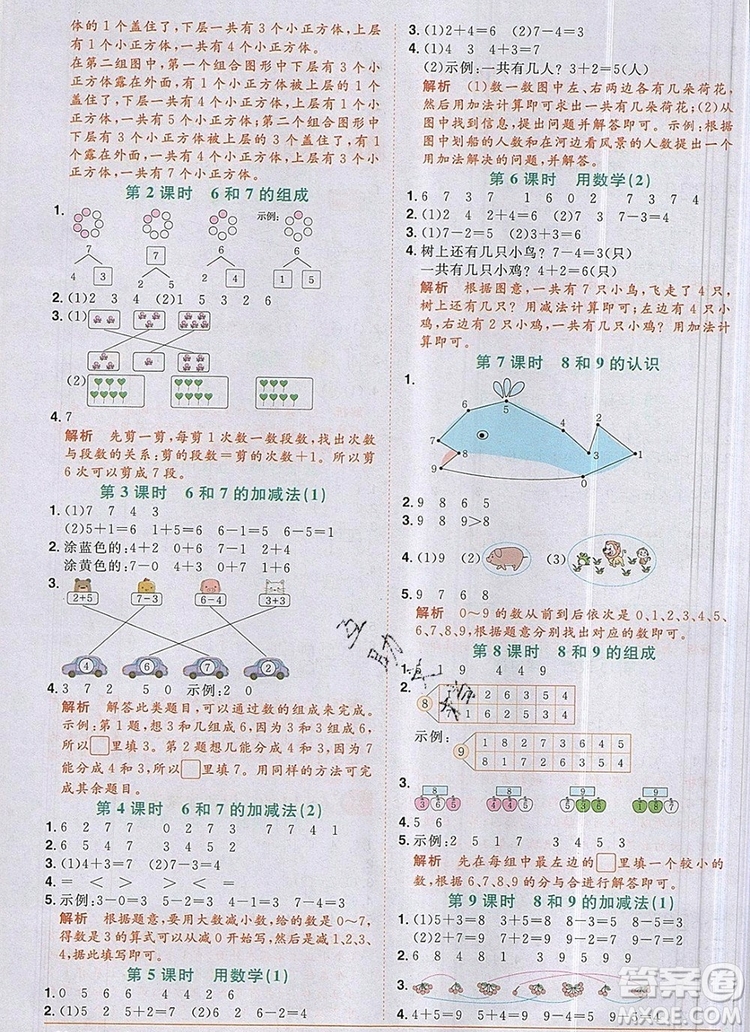 体的 1 个盖住了,一共有 6 个小正方体,上层
有 1 个小正方体,一共有 4 个小正方体。
在第二组图中,第一个组合图形中下层有 3 个小
正方体露在外面,有 1 个小正方体被上层的 1 个
盖住了,一共有 5 个小正方体;第二个组合图形
中下层有 3 个小正方体露在外面,有 3 个小正方
体被上层的 3 个盖住了,一共有 7 个小正方体。
第 2 课时 6 和 7 的组成
1.
示例:
7 7 6 6
4 3 5 2 2 4 1 5
2. (1)2 3 4 (2)1 5 2 4 5
3. (1)
(2)
4. 7
解析 先剪一剪,每剪 1 次数一数段数,找出次数
与段数的关系:剪的段数=剪的次数+1。所以剪
6 次可以剪成 7 段。
第 3 课时 6 和 7 的加减法(1)
1. (1)7 7 4 3
(2)5+1=6 1+5=6 6-1=5 6-5=1
2. 涂蓝色的:4+2 0+6 7-1 6-0
涂黄色的:6+1 0+7 5+2 7-0
3.
2+5 7-3 6-4 3+3
4 6 7 2
4. 3 7 2 5 0 示例:2 0
解析 解答此类题目,可以通过数的组成来完成。
示例:第 1 题,想 3 和几组成 6,3 和 3 组成 6,
所以□里填 3。第 2 题想几减几分成 4,7 减 3 得 4,
所以□里填 7。用同样的方法可以完
成其余题目。
第 4 课时 6 和 7 的加减法(2)
1. 6 2 7 2 7 1 0 3 7 7 4 1
2. 6 2 7 3 6 5
3. (1)4+3=7 (2)7-4=3
4. = < > < = >
5. 示例:3 0 4 1 5 2 6 3
解析 根据题意,要用大数减小数,给的数是 0~7,
得数是 3 的算式可以从减 0 开始写,依次减1、2、3、
4,这样即可写出来。
第 5 课时 用数学(1)
1. 0 5 6 6 4 7
2. (1)5 2 5+2=7 (2)6 2 6-2=4
3. (1)2+4=6 (2)7-4=3
4. (1)4 3 4+3=7
(2)示例:一共有几人? 3+2=5(人)
解析 (1)数一数图中左、右两边各有几朵荷花,
然后用加法计算即可求出一共有几朵荷花;(2)从
图中找到信息,提出问题并解答即可。示例:根据
图中划船的人数和在河边看风景的人数,提出用
加法解决的问题,并解答。
第 6 课时 用数学(2)
1. 6 7 3 7 1 6 0 2 7 3 7 4
2. (1)2+4=6 (2)7-3=4
3. 6-2=4
4. 树上还有几只小鸟? 7-4=3(只)
一共有几只小鸡? 4+2=6(只)
解析 根据图意,一共有 7 只小鸟,飞走了 4 只,
树上还有几只? 用减法计算即可;左边有 4 只小
鸡,右边有 2 只小鸡,一共有几只小鸡? 用加法计
算即可。
第 7 课时 8 和 9 的认识
1.
0 1 2 3 4 5 6 7 8 9
2. 9 8 6 5
3. 9 8 9>8
4. (1)9 (2) (3)
5. 8 9 7
解析 0~9 的数从前到后依次是 0、1、2、3、4、5、
6、7、8、9,根据题意分别找出对应的数即可。
第 8 课时 8 和 9 的组成
1. 6 5 1 9 4 4 9
2.
8 1 2 6 3 5 4
7 6 2 5 3 4
示例:
9 1 8 2 7 3 6 5 4
8 1 7 2 6 3 4 5
3.
8 8 9 9
4. 5 6
5. 示例:2 5 1 7 3 4 5 3
解析 先在每组中最左边的□里填一个较小的
数,再根据 6、7、8、9 的分与合进行解答即可。
第 9 课时 8 和 9 的加减法(1)
1. (1)5+3=8 3+5=8 8-5=3 8-3=5
(2)1+8=9 8+1=9 9-1=8 9-8=1
2. 9 8 3 7 5 9 6 9
3.
答案圈